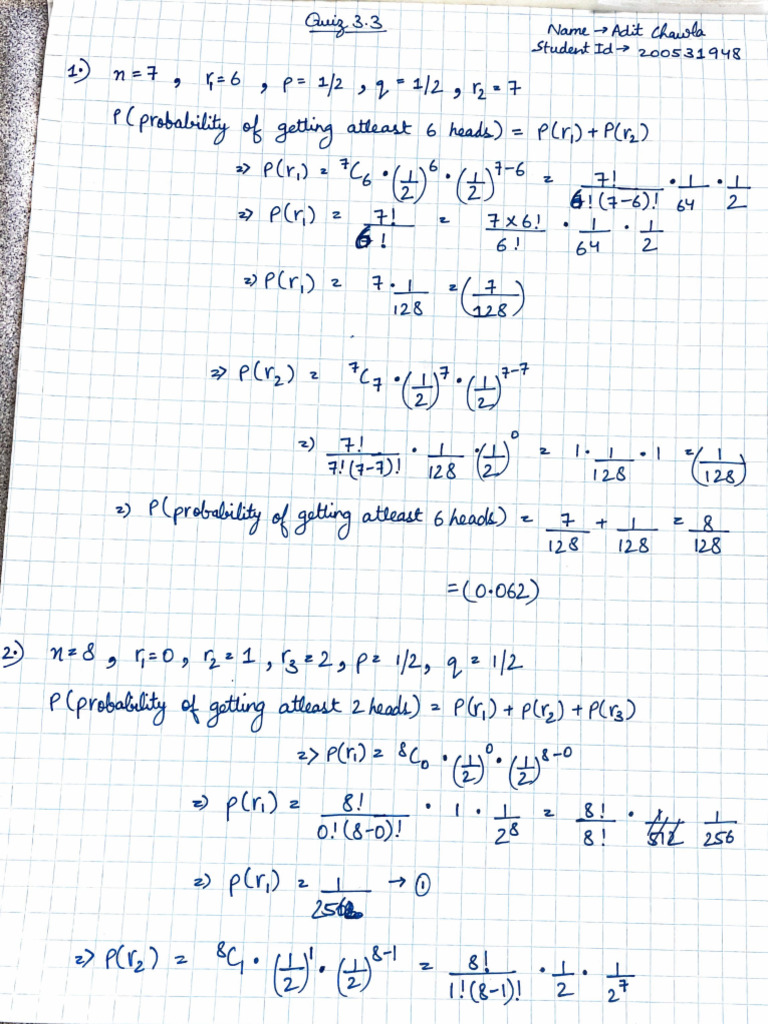 Quiz 3.3
Name → Adit Chawla
Student Id → 200531948
1.) n = 7 , r₁ = 6 , p = 1/2 , q = 1/2 , r₂ = 7
P(probability of getting atleast 6 heads) = P(r₁) + P(r₂)
=> P(r₁) = ⁷C₆ · (1/2)⁶ · (1/2)⁷⁻⁶ = 7!/6!(7-6)! · 1/64 · 1/2
=> P(r₁) = 7!/6! = 7×6!/6! · 1/64 · 1/2
=> P(r₁) = 7 · 1/128 = (7/128)
=> P(r₂) = ⁷C₇ · (1/2)⁷ · (1/2)⁷⁻⁷
=> 7!/7!(7-7)! · 1/128 · (1/2)⁰ = 1 · 1/128 · 1 = (1/128)
=> P(probability of getting atleast 6 heads) = 7/128 + 1/128 = 8/128
= (0.062)
2.) n = 8 , r₁ = 0 , r₂ = 1 , r₃ = 2 , p = 1/2 , q = 1/2
P(probability of getting atleast 2 heads) = P(r₁) + P(r₂) + P(r₃)
=> P(r₁) = ⁸C₀ · (1/2)⁰ · (1/2)⁸⁻⁰
=> P(r₁) = 8!/0!(8-0)! · 1 · 1/2⁸ = 8!/8! · 1/256
=> P(r₁) = 1/256 → ①
=> P(r₂) = ⁸C₁ · (1/2)¹ · (1/2)⁸⁻¹ = 8!/1!(8-1)! · 1/2 · 1/2⁷